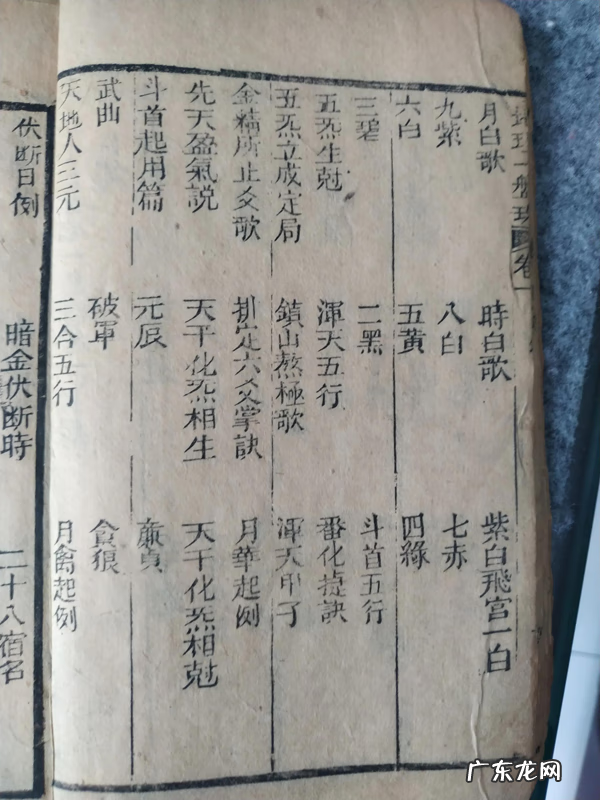 月白歌 時白歌 紫白飛宫一白
九紫 八白 七赤
六白 五黄 四綠
三碧 二黑 斗首五行
五炁生尅 渾天五行 番化捷訣
五炁立成定局 鎮山熬極歌 渾天甲子
金精所止爻歌 排定六爻掌訣 月華起例
先天盈氣説 天干化炁相生 天干化炁相尅
斗首起用篇 元辰 廉貞
武曲 破軍 貪狼
天地人三元 三合五行 月禽起例
伏断日例 暗金伏断時 二十八宿名
广东龙网